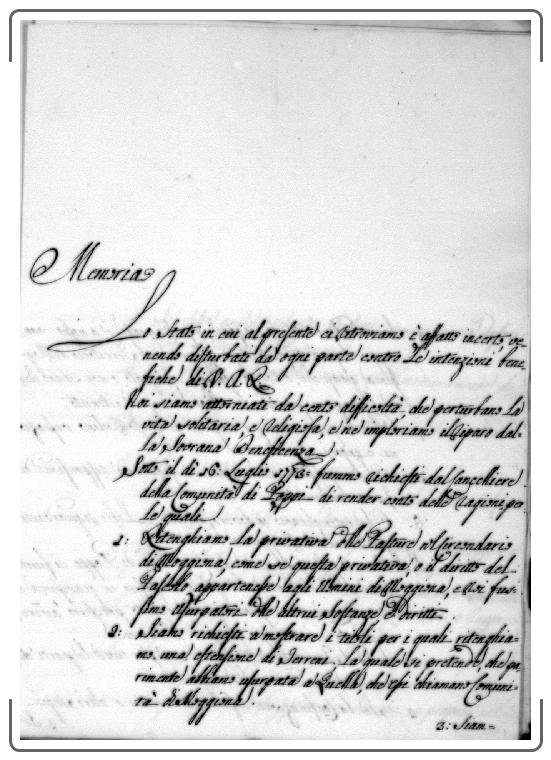 Memoria
Lo Stato in cui al presente ci ritroviamo è affatto incerto, ve-
nendo disturbati da ogni parte contro le intenzioni bene-
fiche di V. A. R.
Noi siamo attorniati da cento difficoltà che perturbano la
vita solitaria e religiosa, e ne imploriamo il riparo dal-
la Sovrana Beneficenza
Sotto il dì 16: Luglio 1773: fummo richiesti dal Cancelliere
della Comunità di Poppi di render conto delle ragioni per
le quali
1: Retenghiamo la privativa delle Pasture nel Circondario
di Moggiona, come se questa privativa, o il diritto del
Pascolo appartenesse agli Uomini di Moggiona, e Noi fus-
simo usurpatori delle altrui Sostanze e Diritti.
2: Siamo richiesti a mostrare i titoli per i quali retenghia-
mo una estensione di Terreni, la quale si pretende, che pa-
rimente abbiamo usurpata a Quella, che essi chiamano Comuni-
tà di Moggiona.
3: Siam=